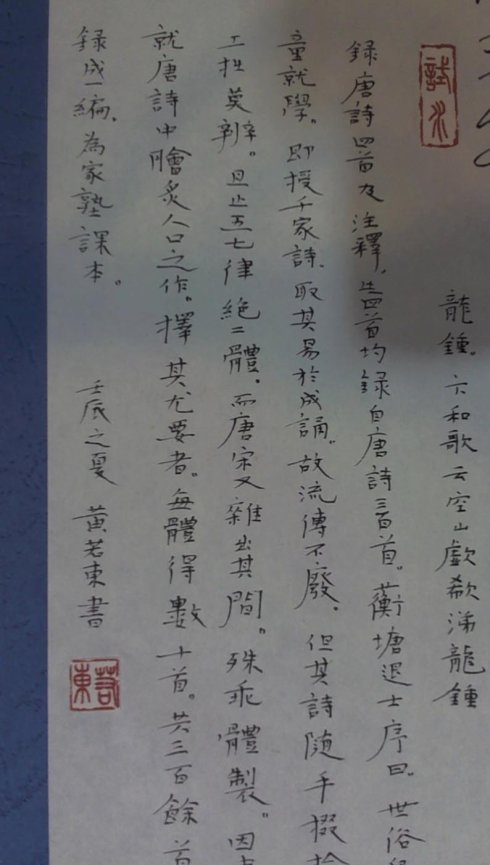 龍鍾。卞和歌云空山歔欷涕龍鍾
錄唐詩四首及注釋，此四首均錄自唐詩三百首。蘅塘退士序曰。世俗
童就學。即授千家詩，取其易於成誦。故流傳不廢。但其詩隨手掇拾
工拙莫辨。且止五七律絕二體。而唐宋又雜出其間。殊乖體製。因
就唐詩中膾炙人口之作。擇其尤要者。每體得數十首。共三百餘首
錄成一編，為家塾課本。 壬辰之夏 黃若東書
若東